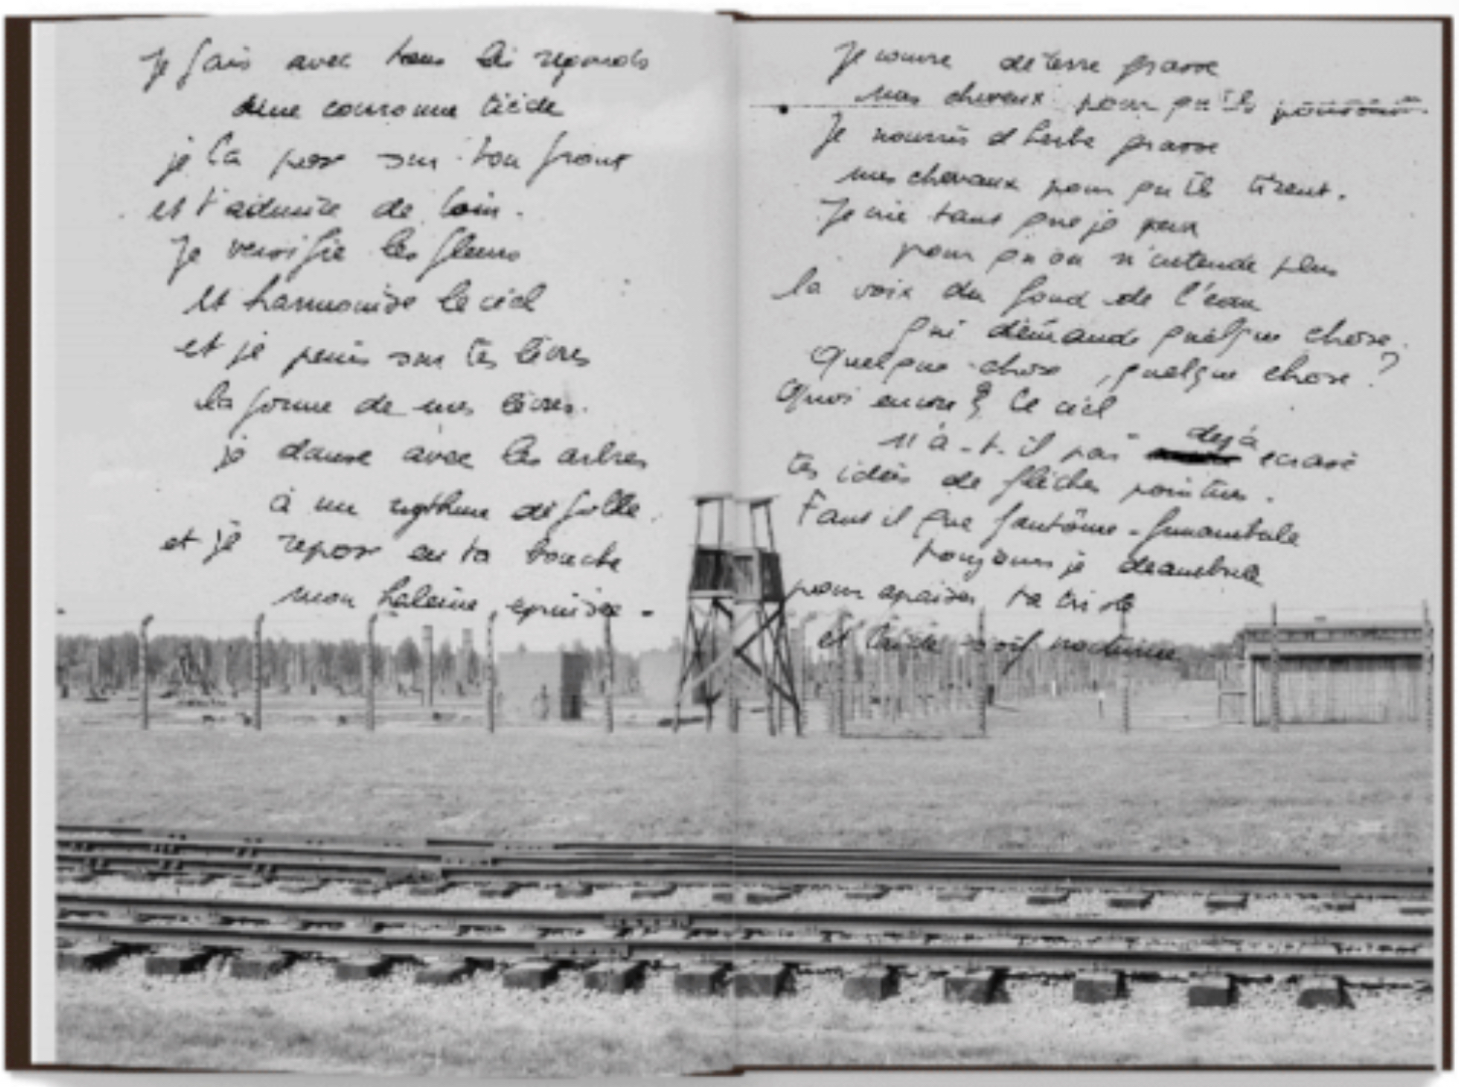 Je fais avec tous les regards
une couronne tiède
je la pose sur ton front
et t'admire de loin.
Je versifie les fleurs
et harmonise le ciel
et je peins sur tes lèvres
la forme de mes lèvres.
je danse avec les arbres
à un rythme
et je repose en ta bouche
mon haleine épuisée -
Je couvre de terre grasse
mes cheveux pour qu'ils poussent.
Je nourris d'herbe grasse
mes chevaux pour qu'ils tirent.
Je crie tant que je peux
pour qu'on n'entende plus
la voix du fond de l'eau
qui demande quelque chose.
Quelque chose, quelque chose ?
Quoi encore ? Le ciel
n'a-t-il pas déjà écrasé
tes idées de flèches pointues.
Faut il que fantôme-funambule
toujours je déambule
pour apaiser ta triste
et soif nocturne